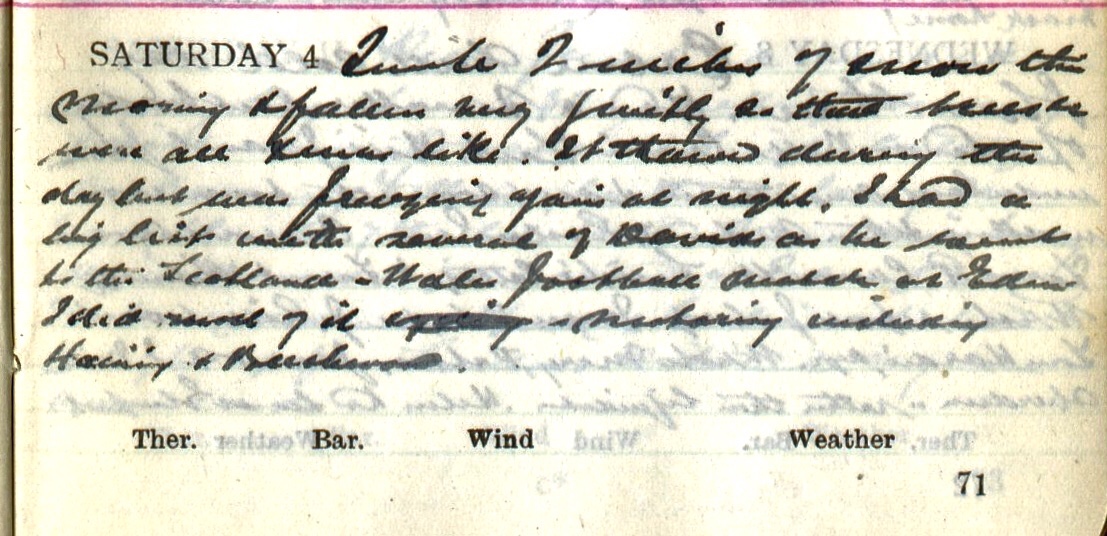 SATURDAY 4 Quite 2 inches of snow this
morning & fallen very quietly as the trees &c
were all Xmas like. It thawed during the
day but was freezing again at night. I had a
big list with several of Davids as he went
to the Scotland - Wales football match at Edin
I did most of it motoring including
&
Ther. Bar. Wind Weather
71